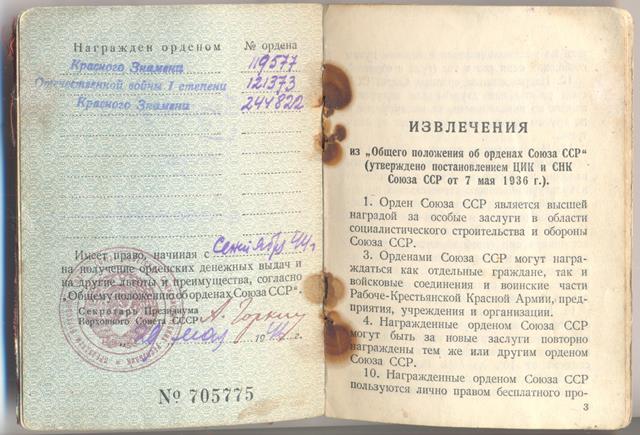 Награжден орденом № ордена
Красного Знамени 119577
Отечественной войны I степени 121373
Красного Знамени 244822
Имеет право, начиная с сентября 44 г.
на получение орденских денежных выдач и
на другие льготы и преимущества, согласно
„Общему положению об орденах Союза ССР“.
Секретарь Президиума
Верховного Совета СССР А. Горкин
мая 1944 г.
№ 705775
ИЗВЛЕЧЕНИЯ
из „Общего положения об орденах Союза ССР“
(утверждено постановлением ЦИК и СНК
Союза ССР от 7 мая 1936 г.).
1. Орден Союза ССР является высшей
наградой за особые заслуги в области
социалистического строительства и обороны
Союза ССР.
3. Орденами Союза ССР могут награ-
ждаться как отдельные граждане, так и
войсковые соединения и воинские части
Рабоче-Крестьянской Красной Армии, пред-
приятия, учреждения и организации.
4. Награжденные орденом Союза ССР
могут быть за новые заслуги повторно
награждены тем же или другим орденом
Союза ССР.
10. Награжденные орденом Союза ССР
пользуются лично правом бесплатного про-
3